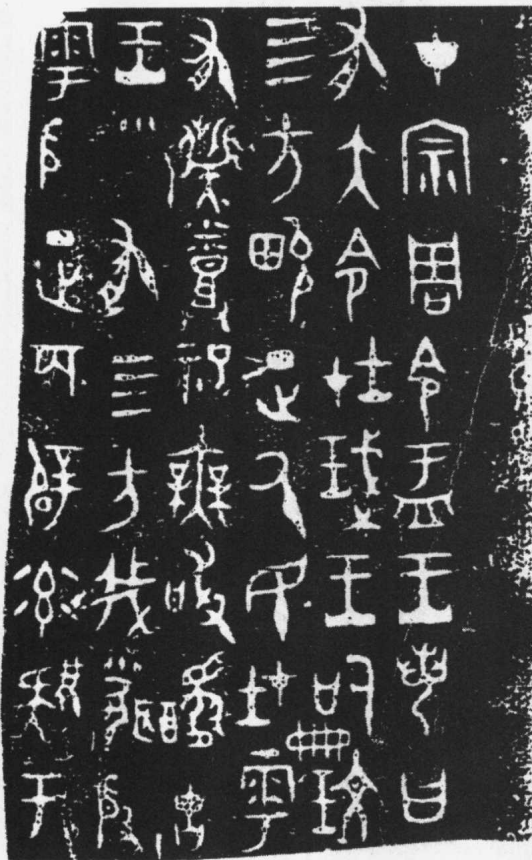 才宗周令盂王若曰
有大令在珷王嗣玟
三方畯正氒民在雩
有祡蒸祀無敢古
王有三方我聞殷
雩殷正百辟率肄于